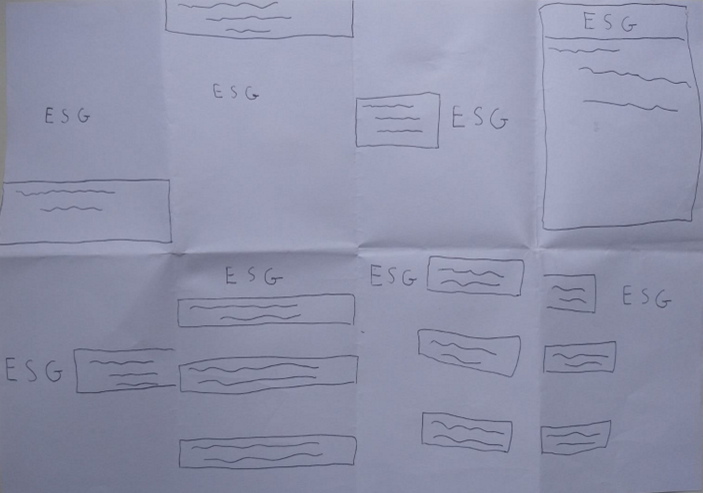 ESG
ESG
ESG
ESG
ESG
ESG
ESG
ESG